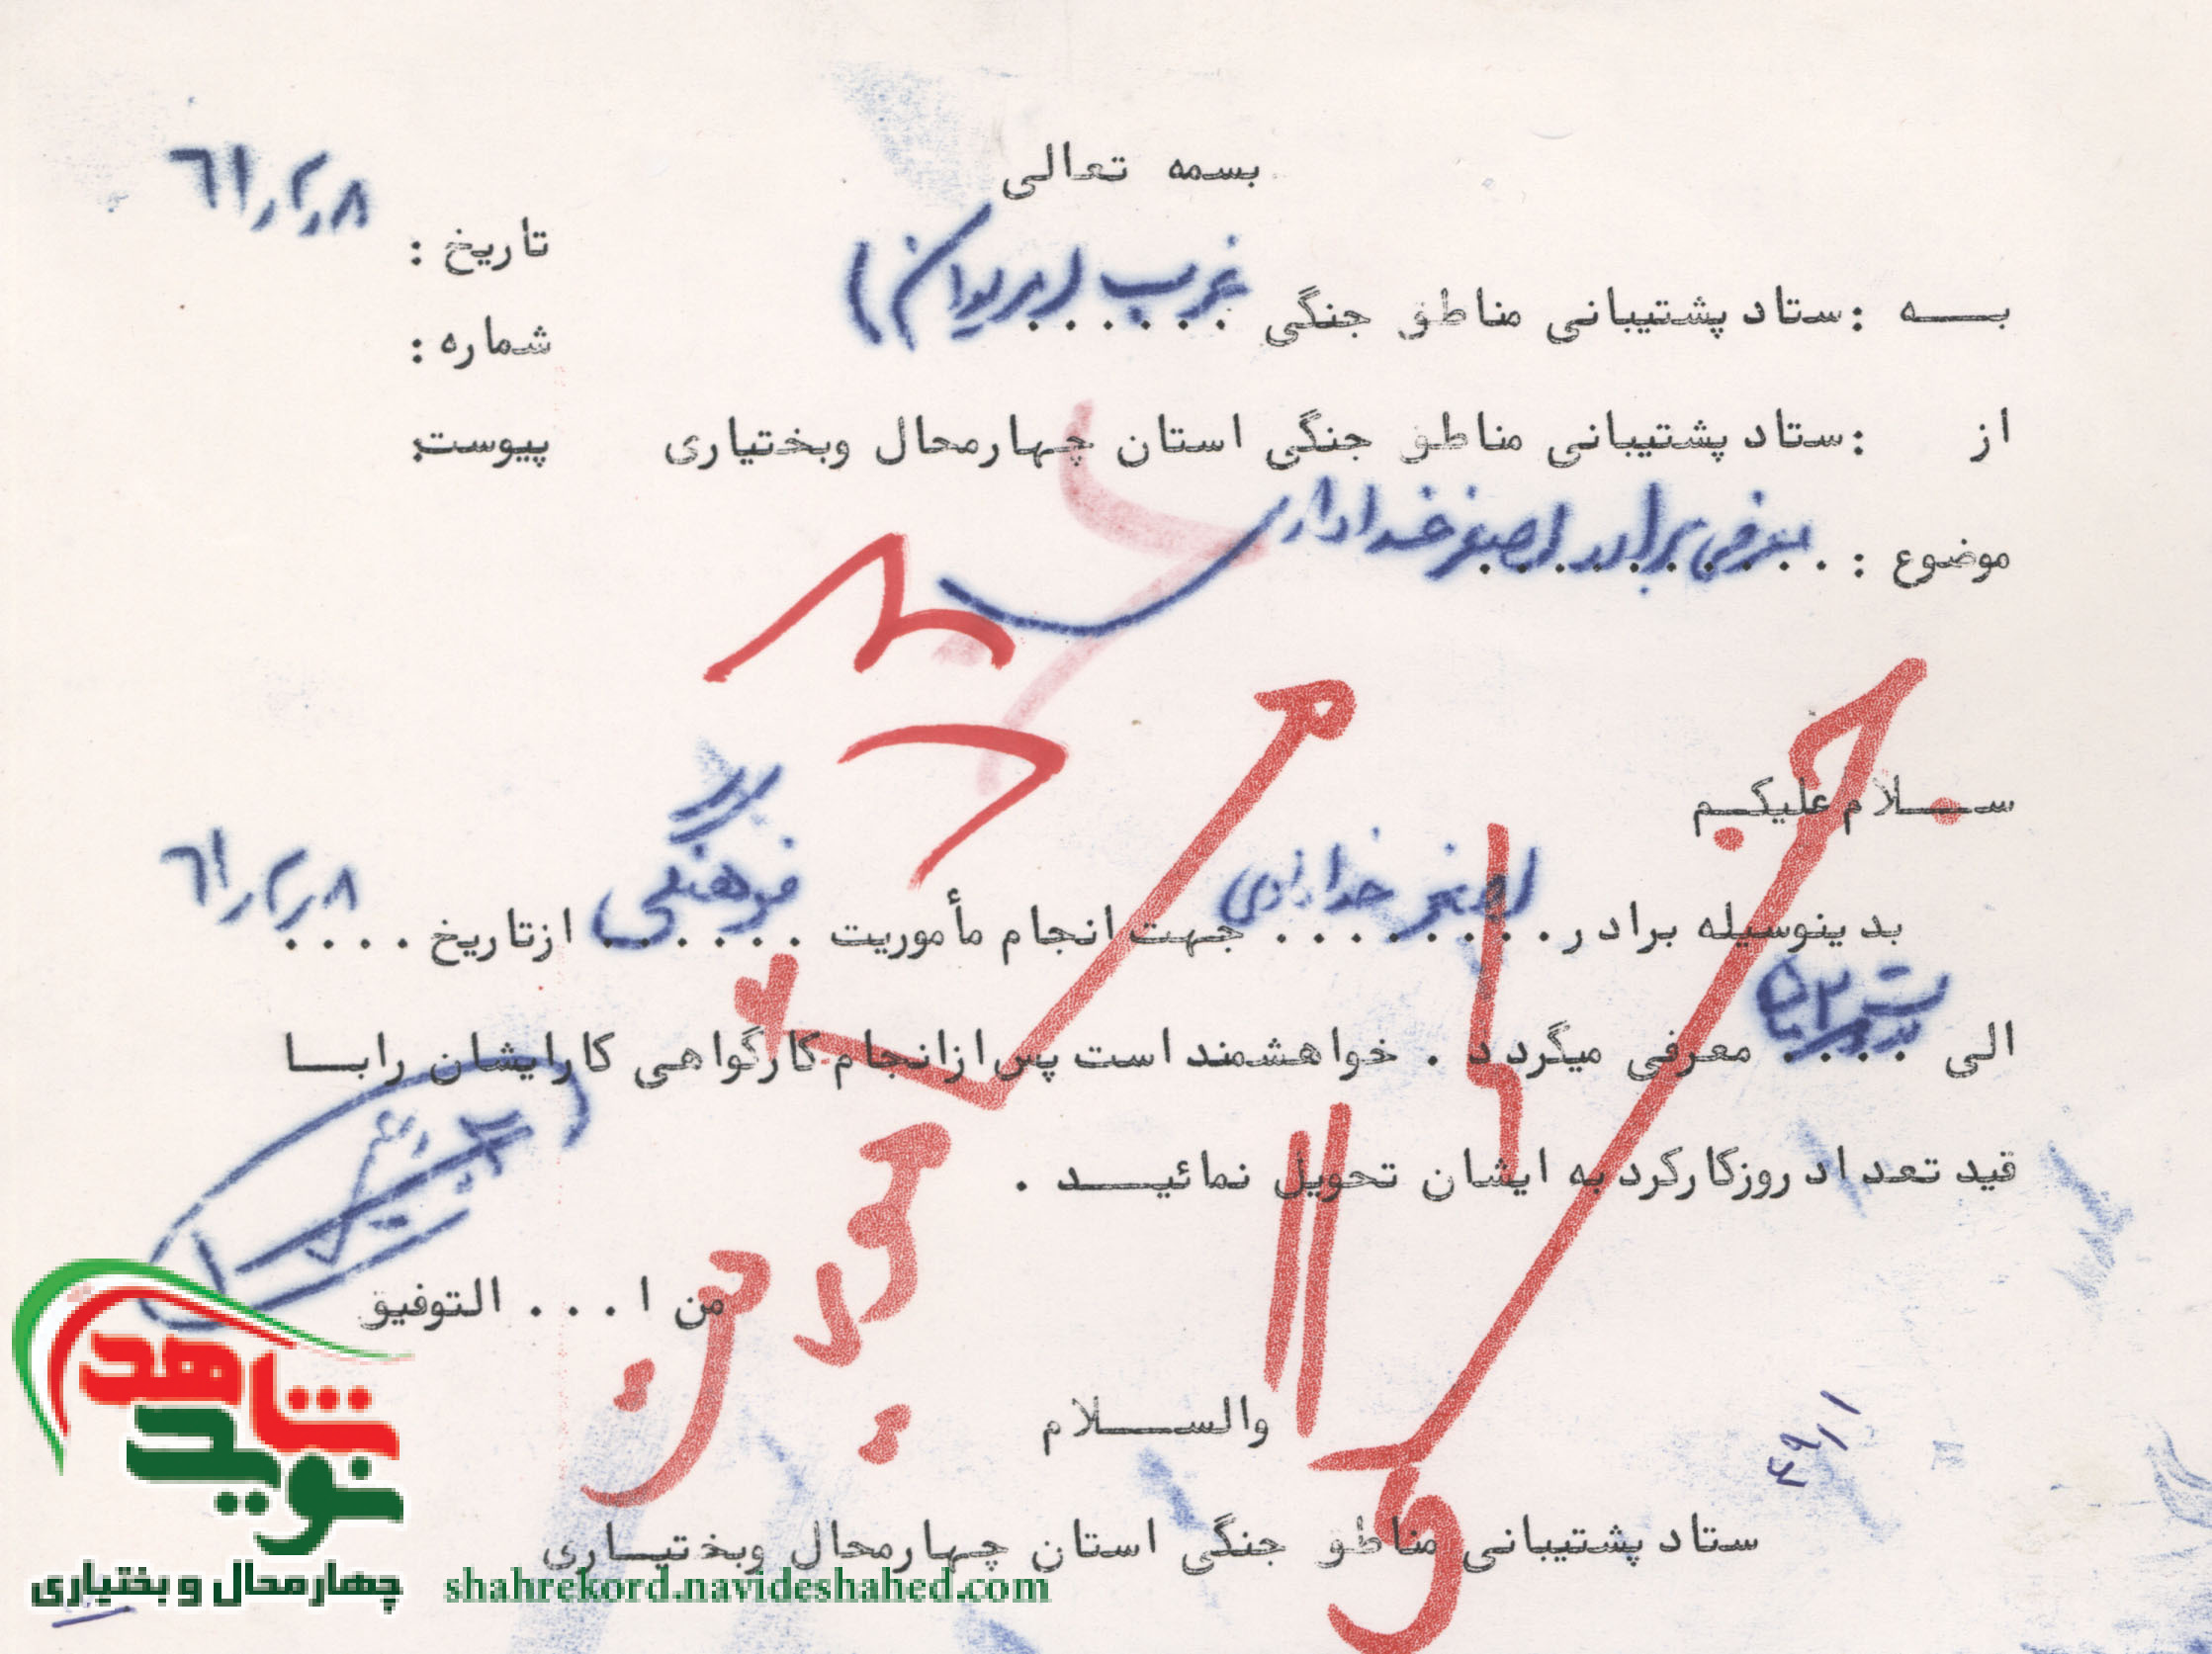 بسمه تعالی
تاریخ : ۶۱٫۲٫۸
به : ستاد پشتیبانی مناطق جنگی غرب (مریوان)
شماره :
از : ستاد پشتیبانی مناطق جنگی استان چهارمحال وبختیاری
پیوست:
موضوع : معرفی برادر اصغر خدادادی
سلام علیکم
بدینوسیله برادر اصغر خدادادی جهت انجام مأموریت فرهنگی ازتاریخ ۶۱٫۲٫۸
الی معرفی میگردد . خواهشمند است پس ازانجام کارگواهی کارایشان رابا
قید تعداد روزکارکرد به ایشان تحویل نمائید .
من ا... التوفیق
والسلام
ستاد پشتیبانی مناطق جنگی استان چهارمحال وبختیاری
نوید شاهد
چهارمحال و بختیاری
shahrekord.navideshahed.com